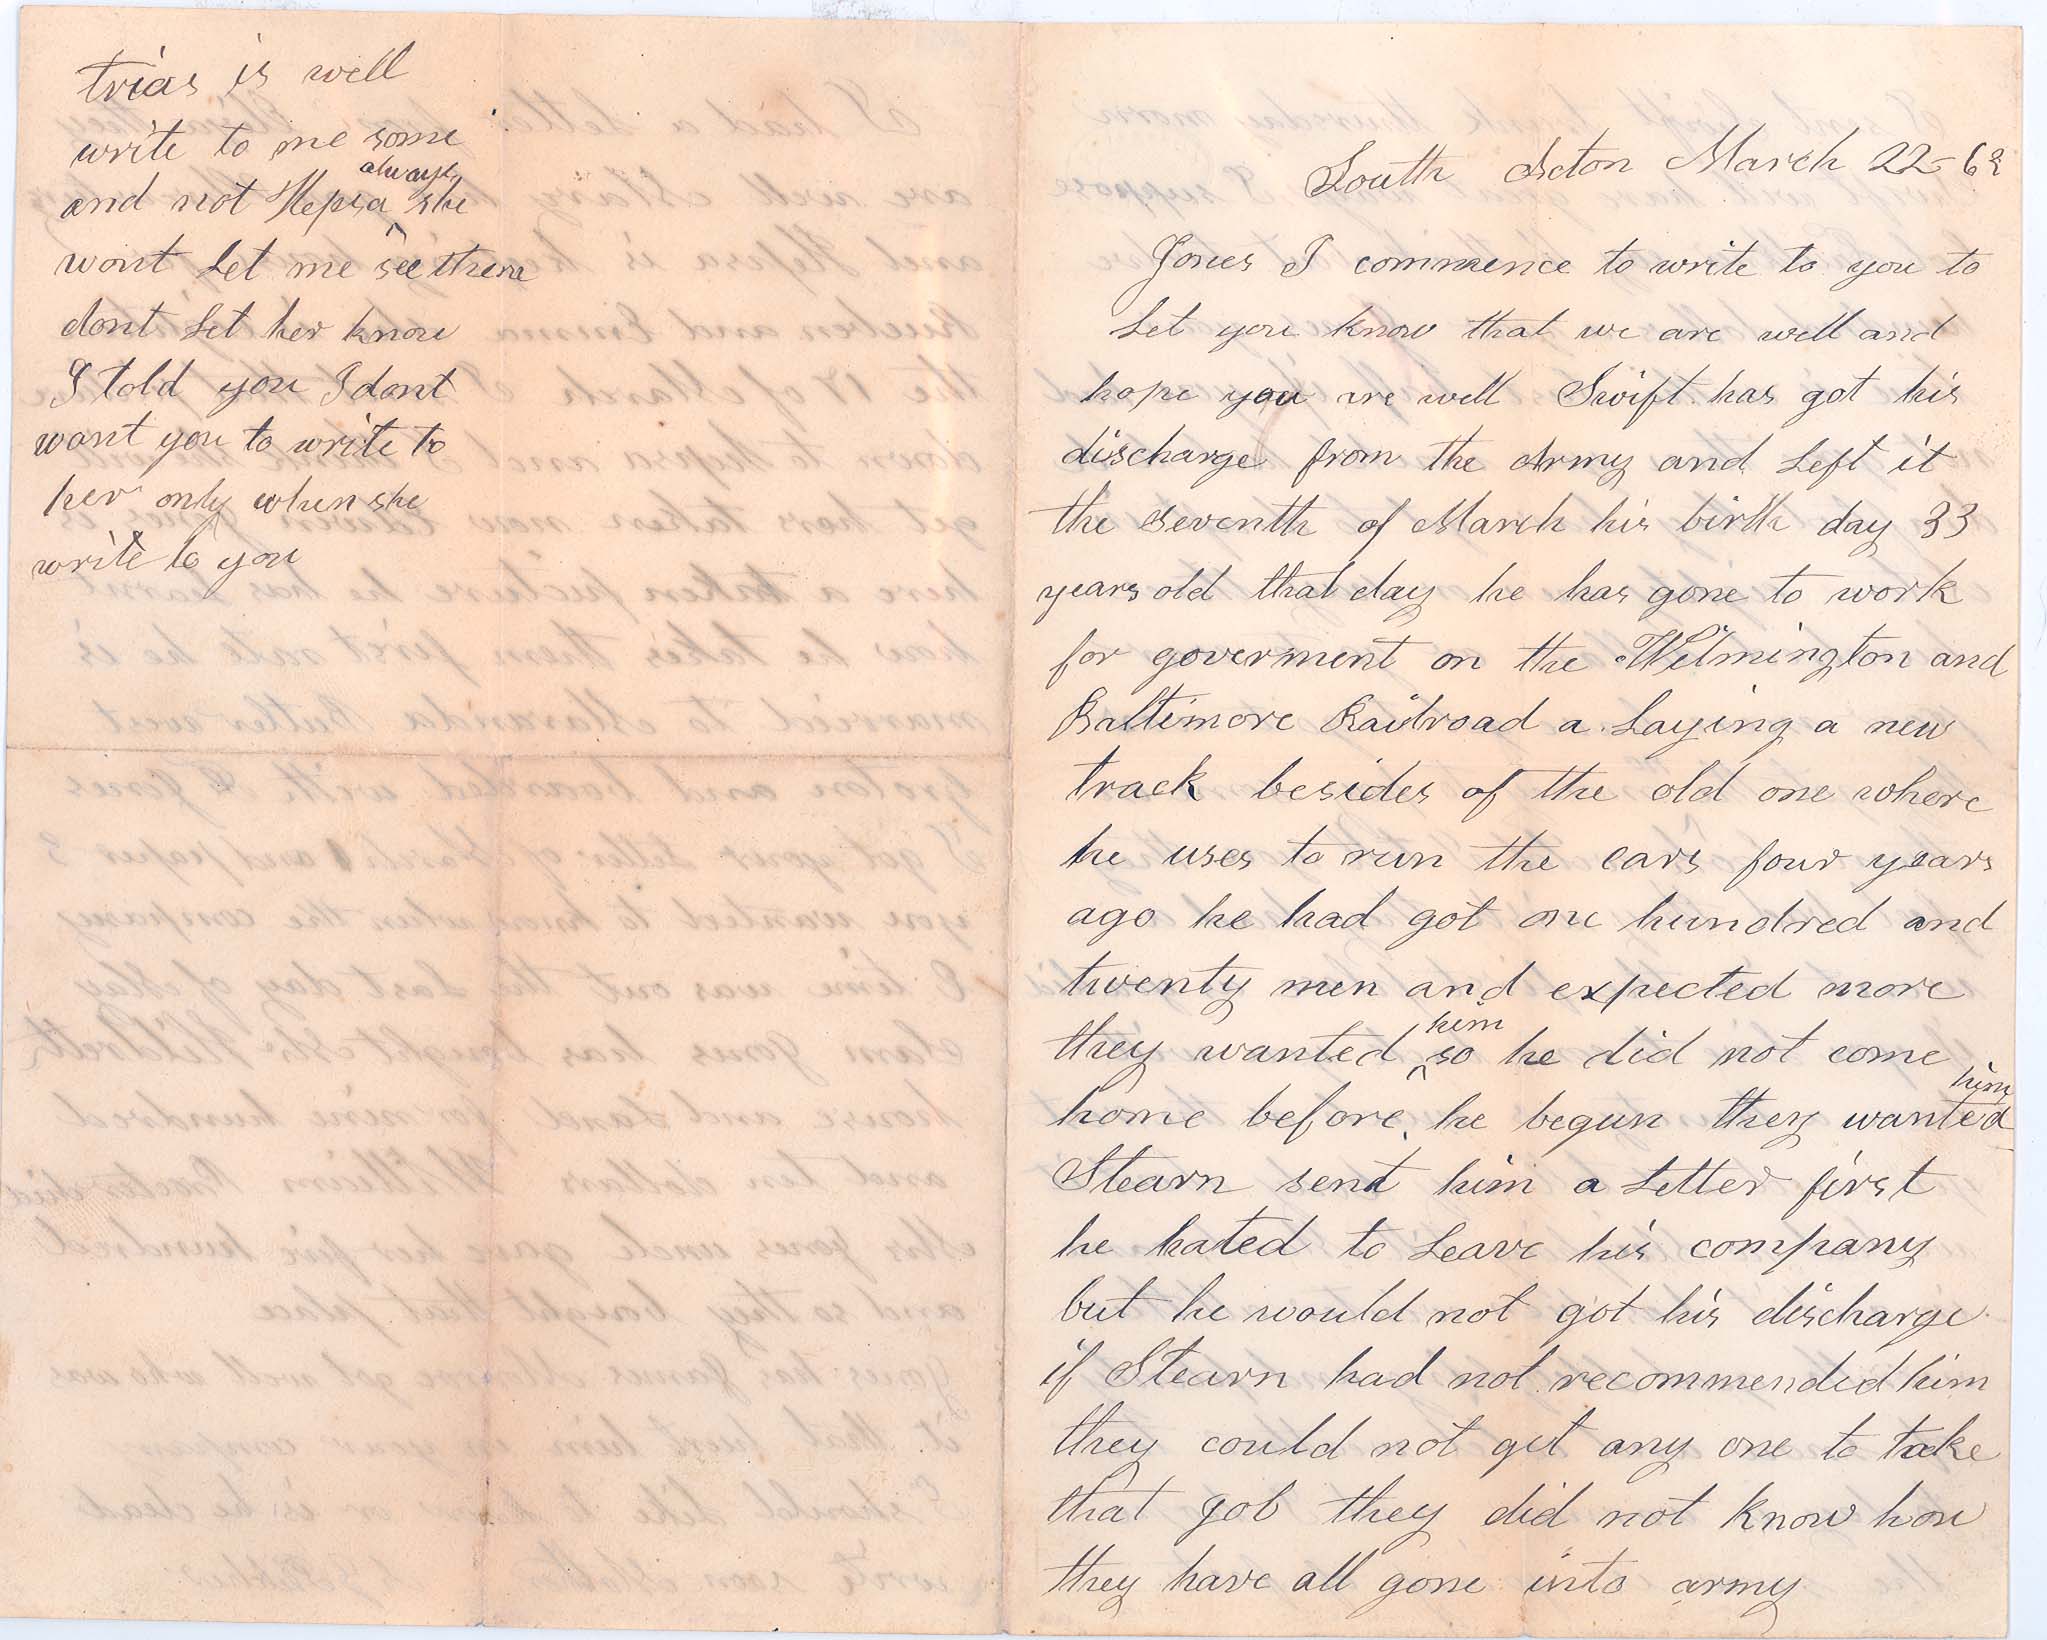 trias is well
write to me some
and not Hepsa always she
wont Let me see them
dont Let her know
I told you I dont
want you to write to
her only when she
write to you
South Acton March 22-63
Jones I commence to write to you to
Let you know that we are well and
hope you are well Swift has got his
discharge from the Army and Left it
the Seventh of March his birth day 33
years old that day he has gone to work
for goverment on the Wilmington and
Baltimore Railroad a Laying a new
track besides of the old one where
he uses to run the cars four years
ago he had got one hundred and
twenty men and expected more
they wanted him so he did not come
home before he begun they wanted him
Stearn sent him a Letter first
he hated to Leave his company
but he would not got his discharge
if Stearn had not recommended him
they could not get any one to take
that job they did not know how
they have all gone into army